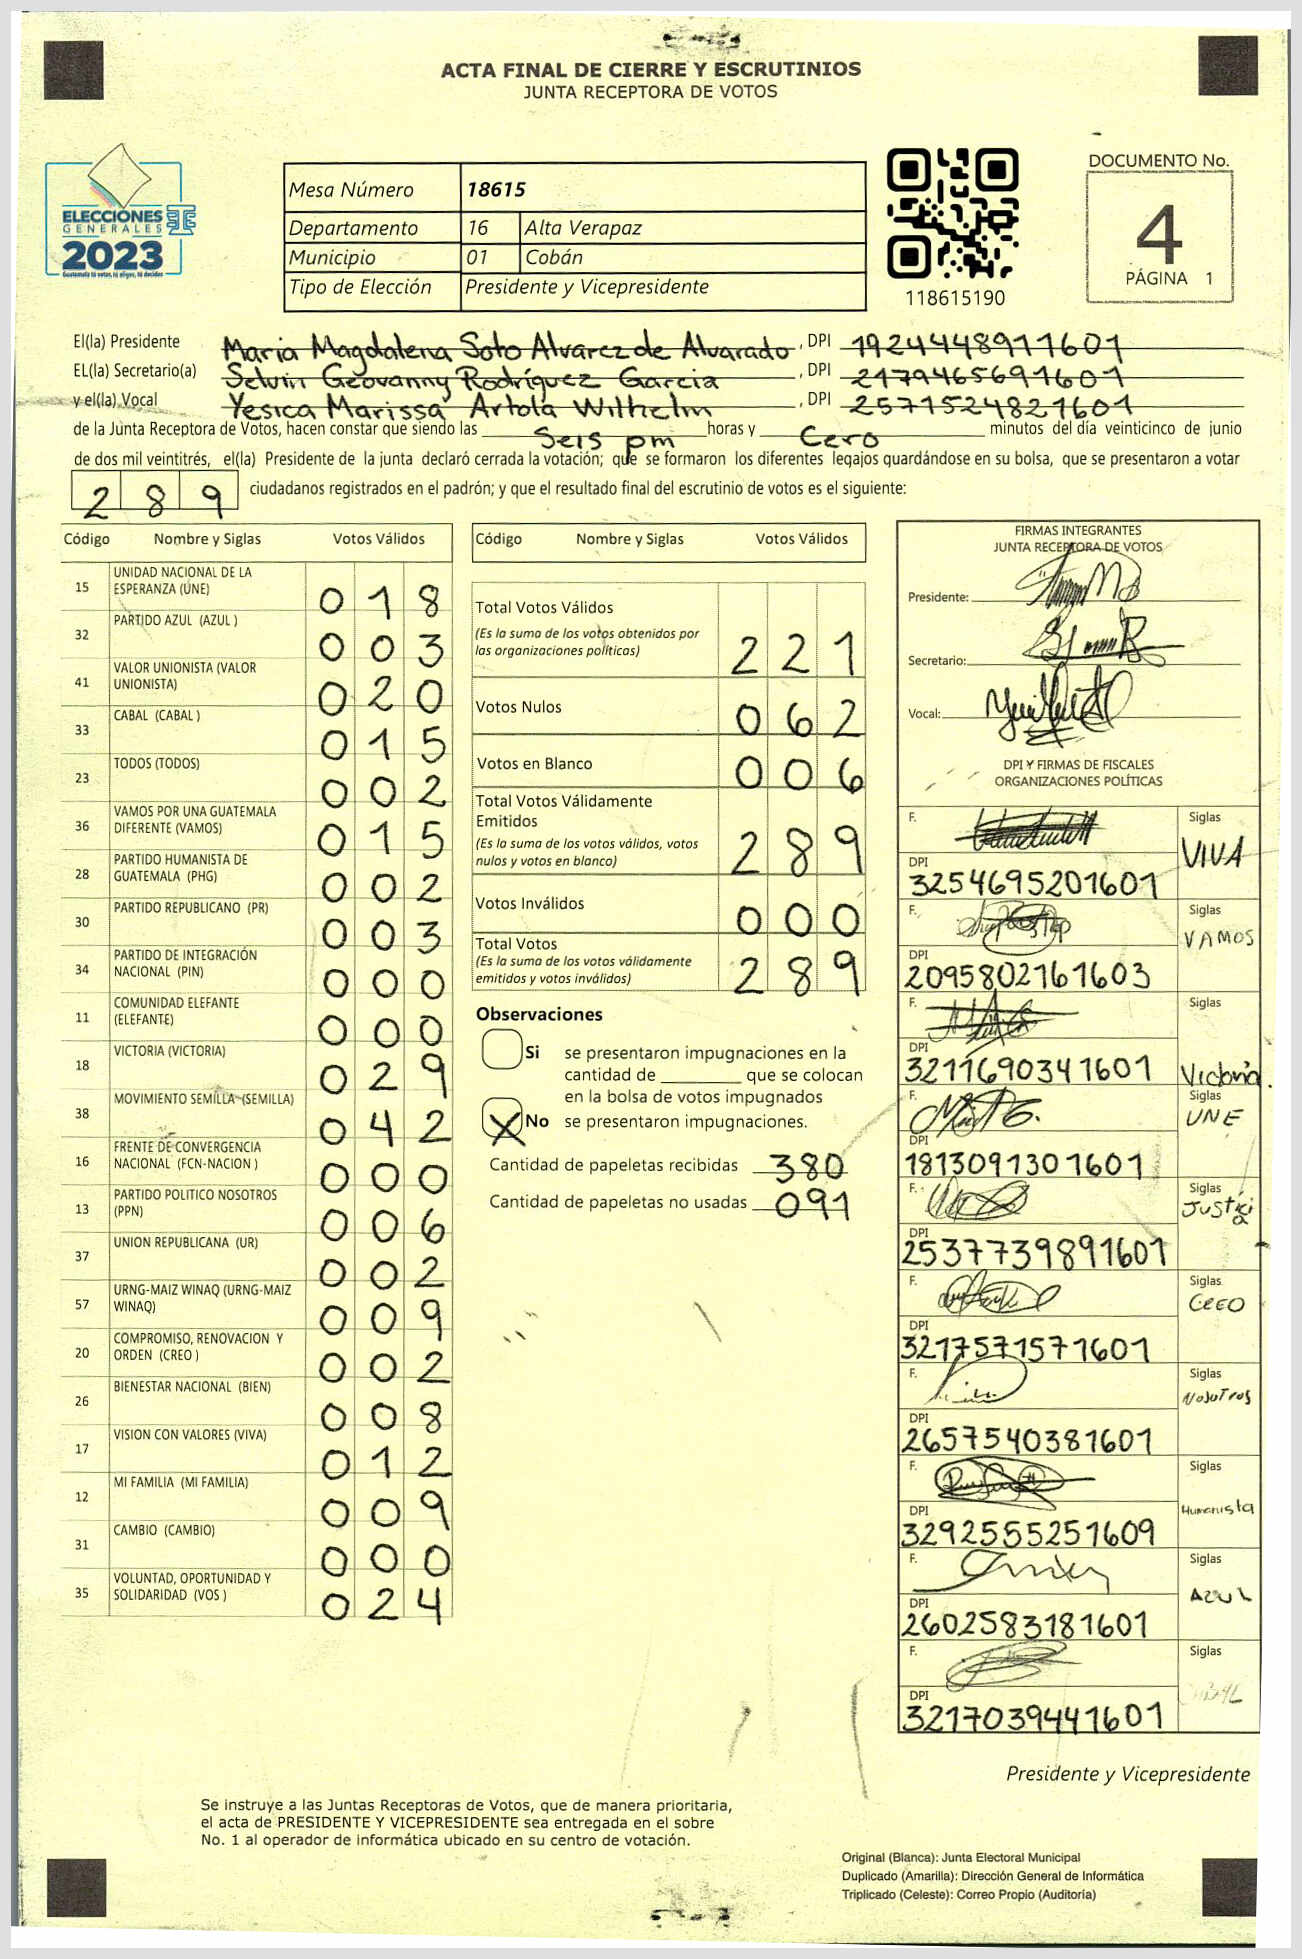 ACTA FINAL DE CIERRE Y ESCRUTINIOS
JUNTA RECEPTORA DE VOTOS
ELECCIONES
GENERALES
2023
Guatemala tú votas, tú eliges, tú decides
Mesa Número 18615
Departamento 16 Alta Verapaz
Municipio 01 Cobán
Tipo de Elección Presidente y Vicepresidente
118615190
DOCUMENTO No.
4
PÁGINA 1
El(la) Presidente Maria Magdalena Soto Alvarez de Alvarado, DPI 1924448911601
EL(la) Secretario(a) Selvin Geovanny Rodríguez Garcia, DPI 2179465691601
y el(la) Vocal Yesica Marissa Artola Wilhelm, DPI 2571524821601
de la Junta Receptora de Votos, hacen constar que siendo las Seis pm horas y Cero minutos del día veinticinco de junio
de dos mil veintitrés, el(la) Presidente de la junta declaró cerrada la votación; que se formaron los diferentes legajos guardándose en su bolsa, que se presentaron a votar
289 ciudadanos registrados en el padrón; y que el resultado final del escrutinio de votos es el siguiente:
Código Nombre y Siglas Votos Válidos
15 UNIDAD NACIONAL DE LA ESPERANZA (UNE) 018
32 PARTIDO AZUL (AZUL ) 003
41 VALOR UNIONISTA (VALOR UNIONISTA) 020
33 CABAL (CABAL ) 015
23 TODOS (TODOS) 002
36 VAMOS POR UNA GUATEMALA DIFERENTE (VAMOS) 015
28 PARTIDO HUMANISTA DE GUATEMALA (PHG) 002
30 PARTIDO REPUBLICANO (PR) 003
34 PARTIDO DE INTEGRACIÓN NACIONAL (PIN) 000
11 COMUNIDAD ELEFANTE (ELEFANTE) 000
18 VICTORIA (VICTORIA) 029
38 MOVIMIENTO SEMILLA (SEMILLA) 042
16 FRENTE DE CONVERGENCIA NACIONAL (FCN-NACION ) 000
13 PARTIDO POLITICO NOSOTROS (PPN) 006
37 UNION REPUBLICANA (UR) 002
57 URNG-MAIZ WINAQ (URNG-MAIZ WINAQ) 009
20 COMPROMISO, RENOVACION Y ORDEN (CREO ) 002
26 BIENESTAR NACIONAL (BIEN) 008
17 VISION CON VALORES (VIVA) 012
12 MI FAMILIA (MI FAMILIA) 009
31 CAMBIO (CAMBIO) 000
35 VOLUNTAD, OPORTUNIDAD Y SOLIDARIDAD (VOS ) 024
Código Nombre y Siglas Votos Válidos
Total Votos Válidos 221
(Es la suma de los votos obtenidos por
las organizaciones políticas)
Votos Nulos 062
Votos en Blanco 006
Total Votos Válidamente
Emitidos 289
(Es la suma de los votos válidos, votos
nulos y votos en blanco)
Votos Inválidos 000
Total Votos 289
(Es la suma de los votos válidamente
emitidos y votos inválidos)
Observaciones
Si se presentaron impugnaciones en la
cantidad de ________ que se colocan
en la bolsa de votos impugnados
X No se presentaron impugnaciones.
Cantidad de papeletas recibidas 380
Cantidad de papeletas no usadas 091
FIRMAS INTEGRANTES
JUNTA RECEPTORA DE VOTOS
Presidente:
Secretario:
Vocal:
DPI Y FIRMAS DE FISCALES
ORGANIZACIONES POLÍTICAS
F. Siglas VIVA
DPI 3254695201601
F. Siglas VAMOS
DPI 2095802161603
F. Siglas Victoria.
DPI 3211690341601
F. Siglas UNE
DPI 1813091301601
F. Siglas Justicia
DPI 2537739891601
F. Siglas CREO
DPI 3217571571601
F. Siglas Nosotros
DPI 2657540381601
F. Siglas Humanista
DPI 3292555251609
F. Siglas AZUL
DPI 2602583181601
F. Siglas
DPI 3217039441601
Presidente y Vicepresidente
Se instruye a las Juntas Receptoras de Votos, que de manera prioritaria,
el acta de PRESIDENTE Y VICEPRESIDENTE sea entregada en el sobre
No. 1 al operador de informática ubicado en su centro de votación.
Original (Blanca): Junta Electoral Municipal
Duplicado (Amarilla): Dirección General de Informática
Triplicado (Celeste): Correo Propio (Auditoría)